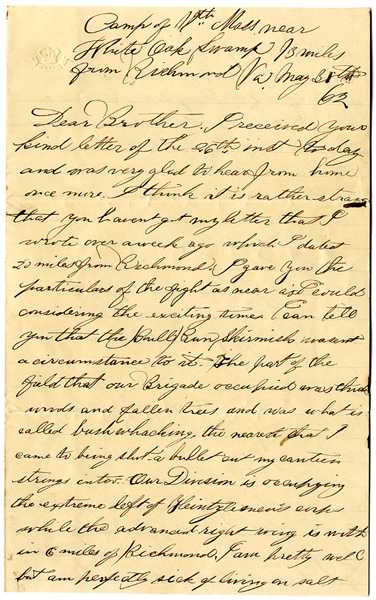 Camp of 11th Mass. near
White Oak Swamp 13 miles
from Richmond Va. May 31st
/62
Dear Brother, I received your
kind letter of the 26th inst to day
and was very glad to hear from home
once more. I think it is rather strange
that you havent got my letter that I
wrote over a week ago which I dated
20 miles from Richmond. I gave you the
particulars of the fight as near as I could
considering the exciting times I can tell
you that the Bull Run Skirmish wasent
a circumstance to it. The part of the
field that our Brigade occupied was thick
woods and fallen trees and was what is
called bushwhacking, the nearest that I
came to being shot a bullet cut my canteen
strings in two. Our Division is occupying
the extreme left of Heintzleman's corps
while the advanced right wing is with
in 6 miles of Richmond. I am pretty well
but am perfectly sick of living on salt